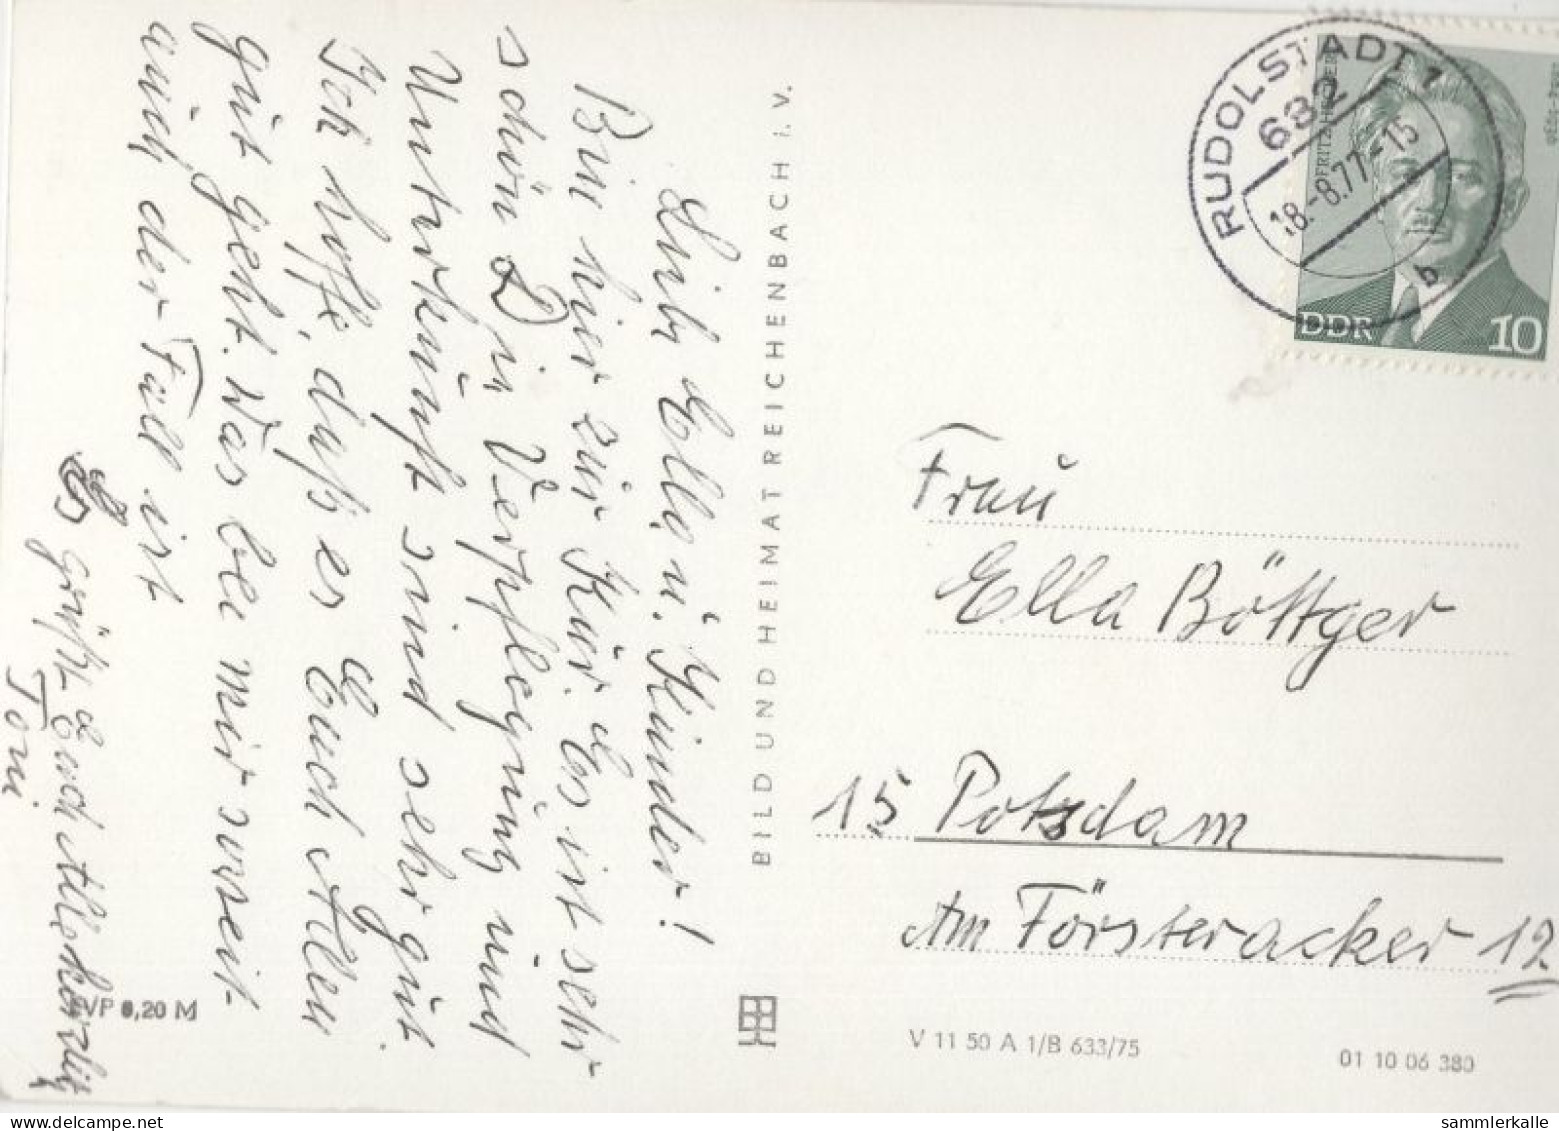 Liebe Ella u. Kinder!
Bin hier zur Kur. Es ist sehr
schön. Die Verpflegung und
Unterkunft sind sehr gut.
Ich hoffe, daß es Euch Allen
gut geht. Was bei mir soweit
auch der Fall ist
Es grüßt Euch Alle herzlich
Toni
BILD UND HEIMAT REICHENBACH i. V.
EVP 0,20 M
RUDOLSTADT 1
682
18.-8.77-15
b
FRITZ HECKERT
DDR
10
Frau
Ella Böttger
15 Potsdam
Am Försteracker 12
V 11 50 A 1/B 633/75
01 10 06 380
sammlerkalle